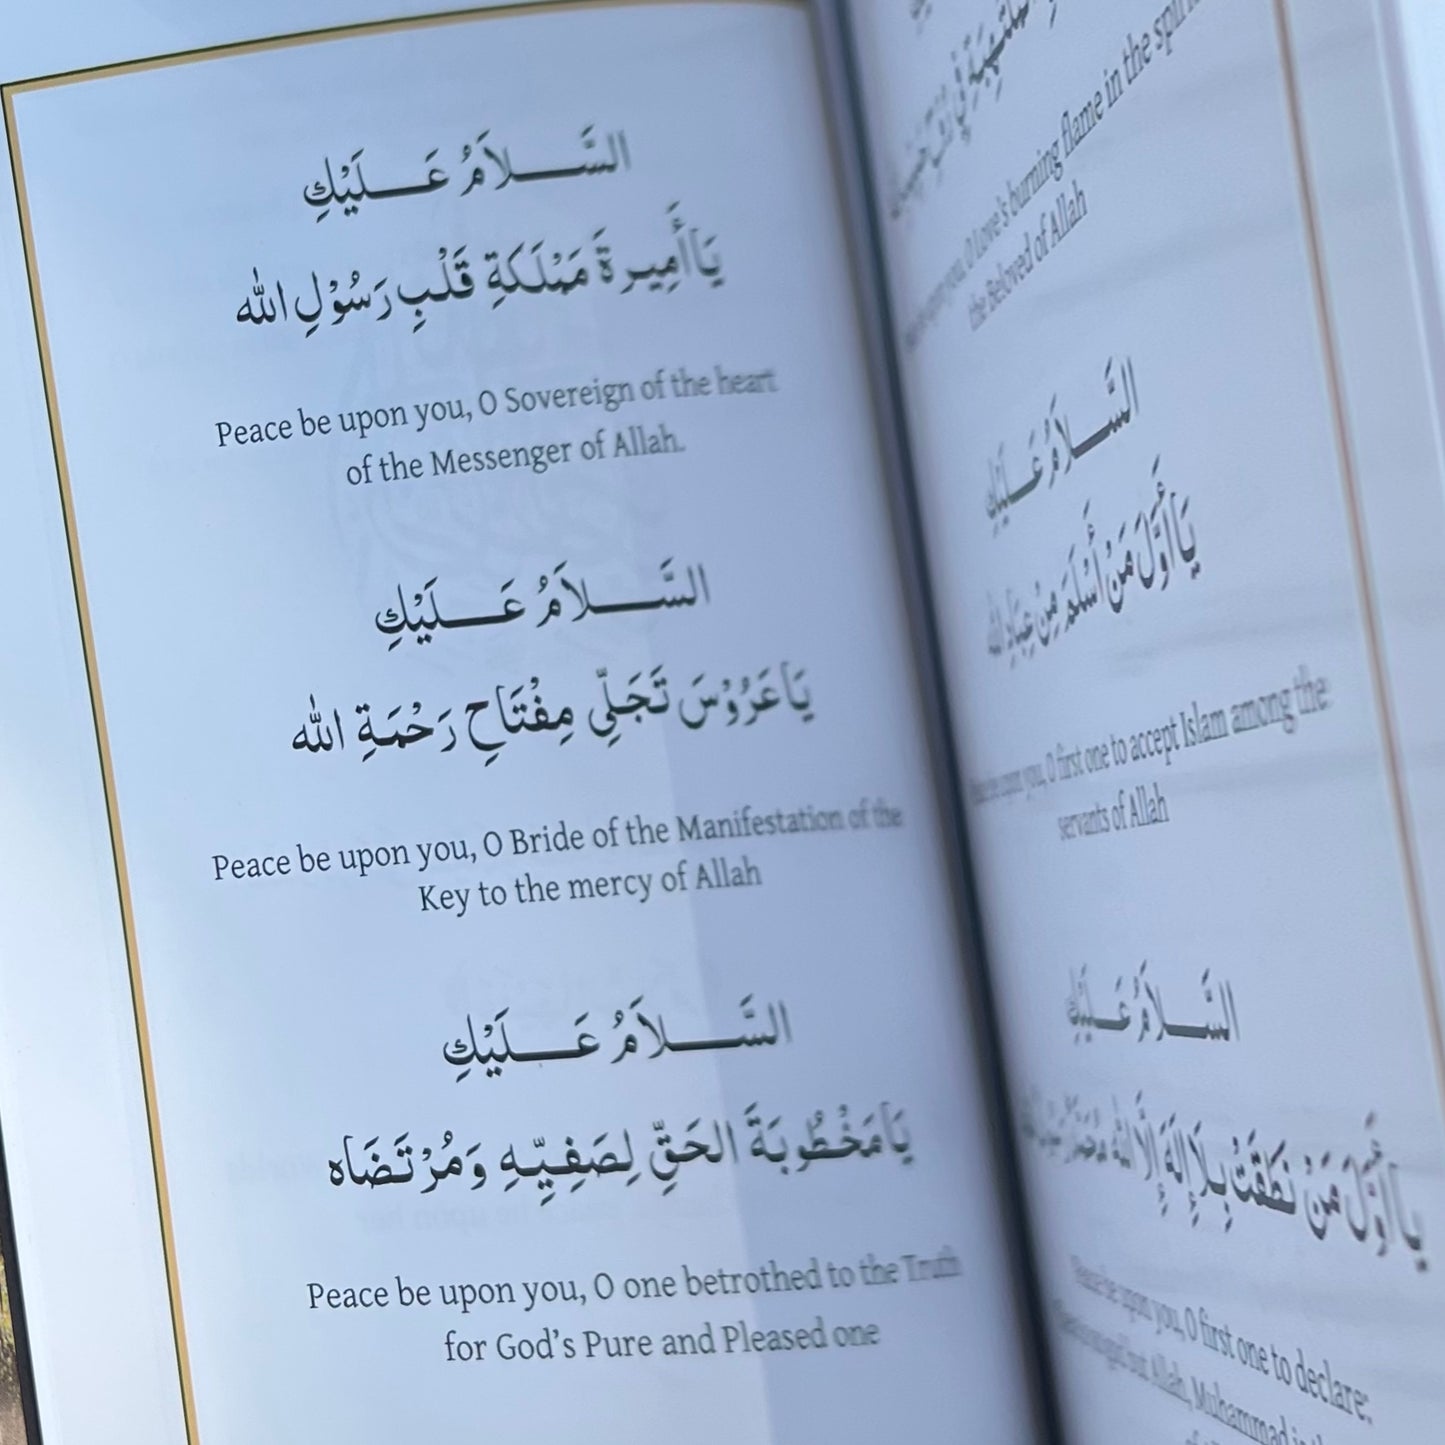 السَّـــلاَمُ عَـــلَيْكِ
يَا أَمِيرةَ مَمْلَكَةِ قَلْبِ رَسُوْلِ الله
Peace be upon you, O Sovereign of the heart
of the Messenger of Allah.
السَّـــلاَمُ عَـــلَيْكِ
يَا عَرُوْسَ تَجَلِّي مِفْتَاحِ رَحْمَةِ الله
Peace be upon you, O Bride of the Manifestation of the
Key to the mercy of Allah
السَّـــلاَمُ عَـــلَيْكِ
يَا مَخْطُوبَةَ الحَقِّ لِصَفِيِّهِ وَمُرْتَضَاه
Peace be upon you, O one betrothed to the Truth
for God's Pure and Pleased one
you, O Love's burning flame in the
the Beloved of Allah
السَّـــلاَمُ عَـــلَيْكِ
يَا أَوَّلَ مَنْ أَسْلَمَ مِنْ عِبَادِ الله
you, O first one to accept Islam among the
servants of Allah
السَّـــلاَمُ عَـــلَيْكِ
يَا أَوَّلَ مَنْ نَطَقَتْ بِلَا إِلَهَ إِلَّا الله
be upon you, O first one to declare:
Allah, Muhammad